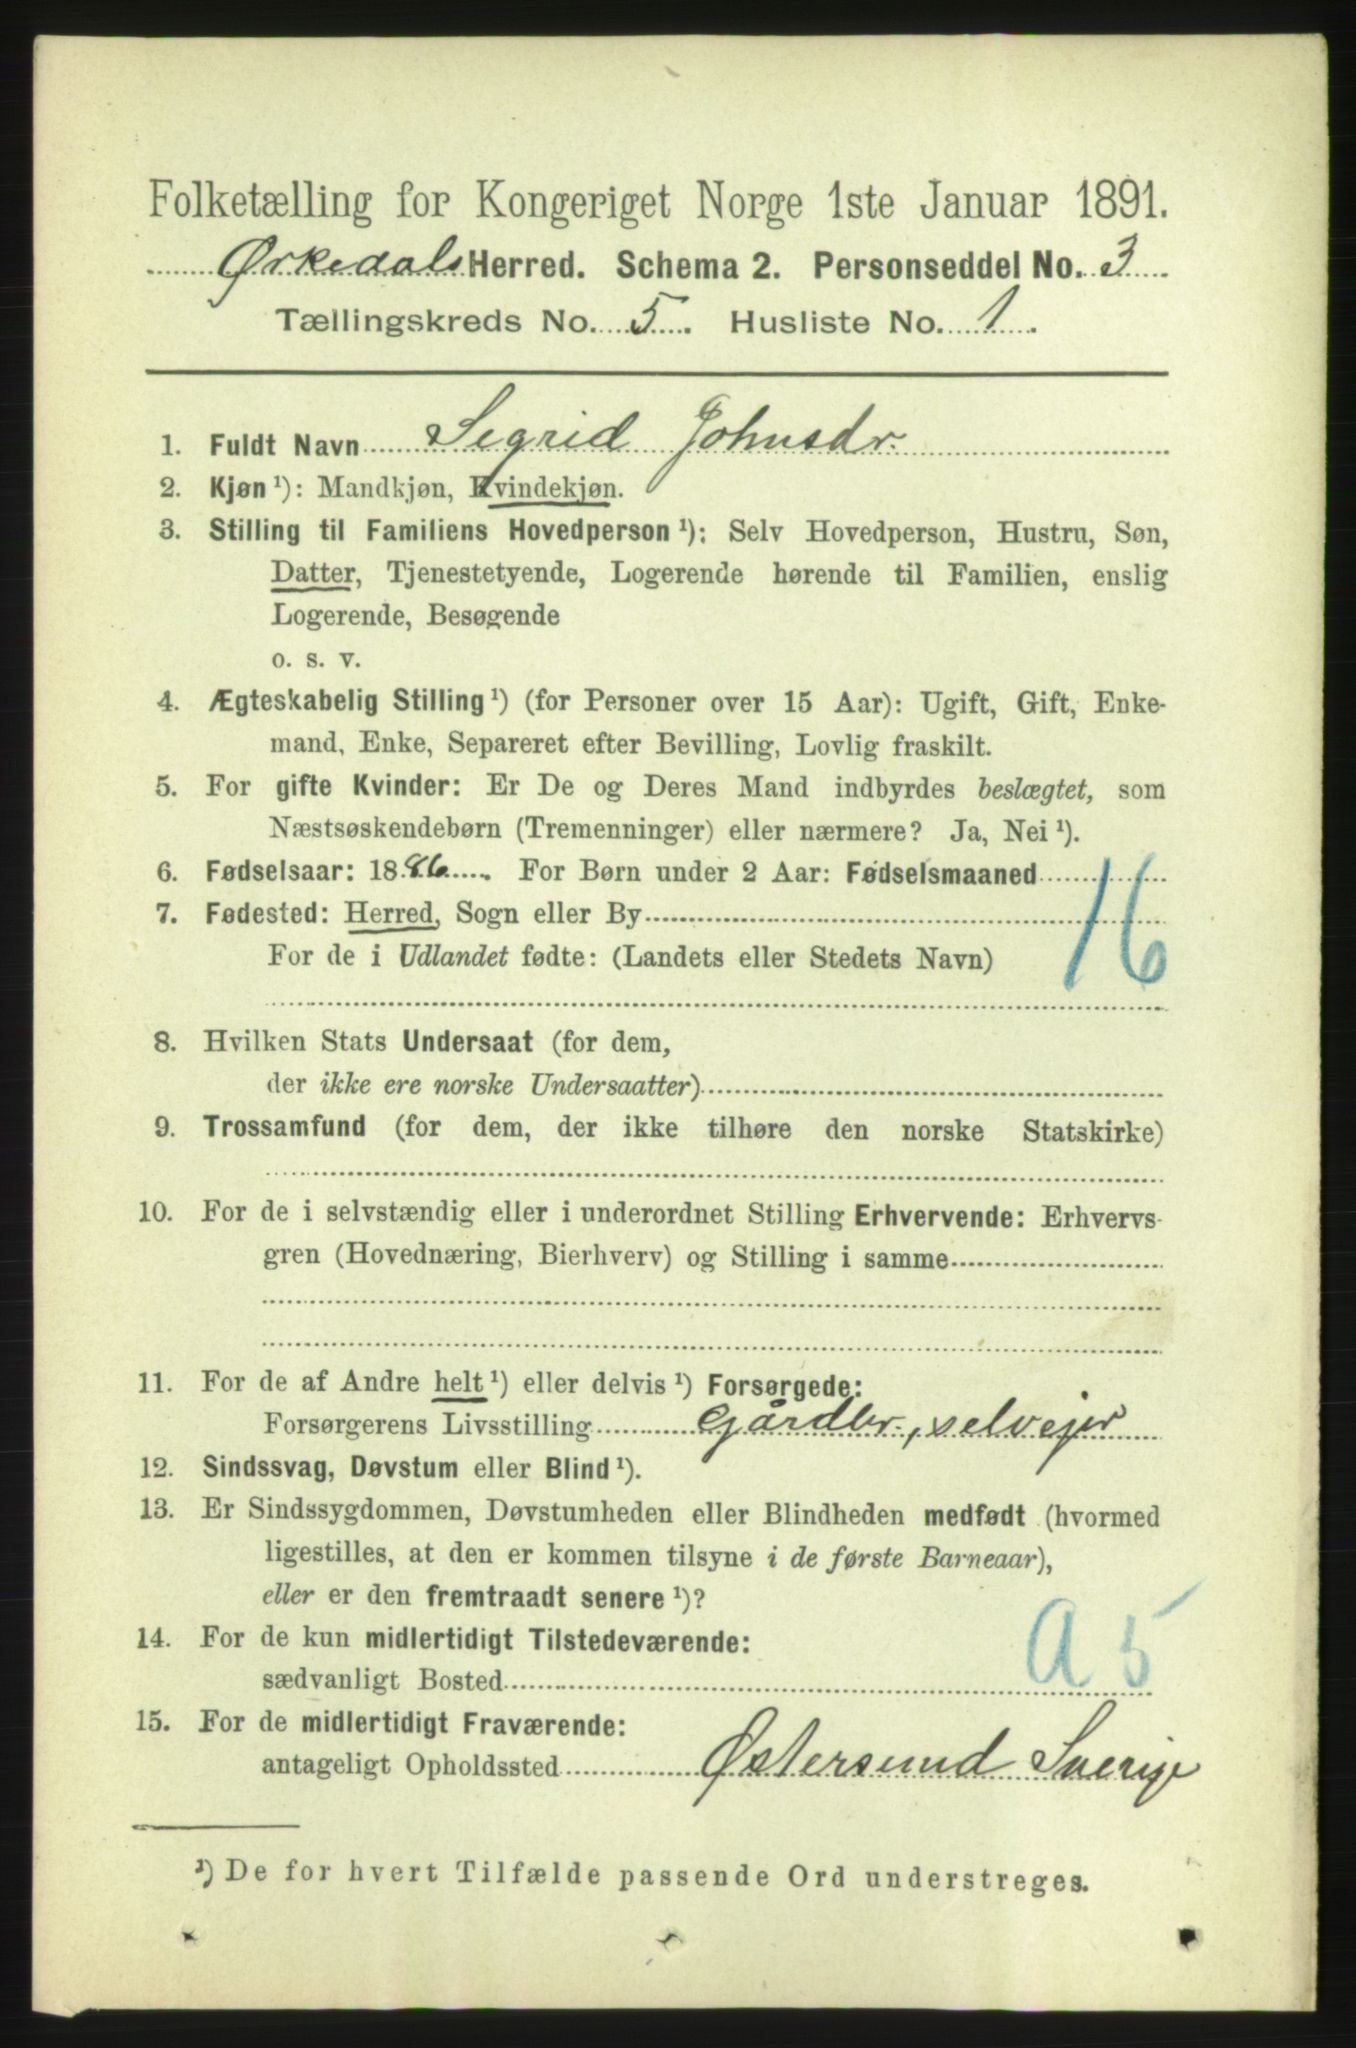 Folketælling for Kongeriget Norge 1ste Januar 1891.
Ørkedals Herred. Schema 2. Personseddel No. 3
Tællingskreds No. 5. Husliste No. 1.
1. Fuldt Navn Segrid Johnsdr.
2. Kjøn ¹): Mandkjøn, Kvindekjøn.
3. Stilling til Familiens Hovedperson ¹): Selv Hovedperson, Hustru, Søn,
Datter, Tjenestetyende, Logerende hørende til Familien, enslig
Logerende, Besøgende
o. s. v.
4. Ægteskabelig Stilling ¹) (for Personer over 15 Aar): Ugift, Gift, Enke-
mand, Enke, Separeret efter Bevilling, Lovlig fraskilt.
5. For gifte Kvinder: Er De og Deres Mand indbyrdes beslægtet, som
Næstsøskendebørn (Tremenninger) eller nærmere? Ja, Nei ¹).
6. Fødselsaar: 1886. For Børn under 2 Aar: Fødselsmaaned
7. Fødested: Herred, Sogn eller By
16
For de i Udlandet fødte: (Landets eller Stedets Navn)
8. Hvilken Stats Undersaat (for dem,
der ikke ere norske Undersaatter)
9. Trossamfund (for dem, der ikke tilhøre den norske Statskirke)
10. For de i selvstændig eller i underordnet Stilling Erhvervende: Erhvervs-
gren (Hovednæring, Bierhverv) og Stilling i samme
11. For de af Andre helt ¹) eller delvis ¹) Forsørgede:
Forsørgerens Livsstilling Gårdbr., selvejer
12. Sindssvag, Døvstum eller Blind ¹).
13. Er Sindssygdommen, Døvstumheden eller Blindheden medfødt (hvormed
ligestilles, at den er kommen tilsyne i de første Barneaar),
eller er den fremtraadt senere ¹)?
14. For de kun midlertidigt Tilstedeværende:
A 5
sædvanligt Bosted
15. For de midlertidigt Fraværende:
antageligt Opholdssted Østersund Sverige
¹) De for hvert Tilfælde passende Ord understreges.